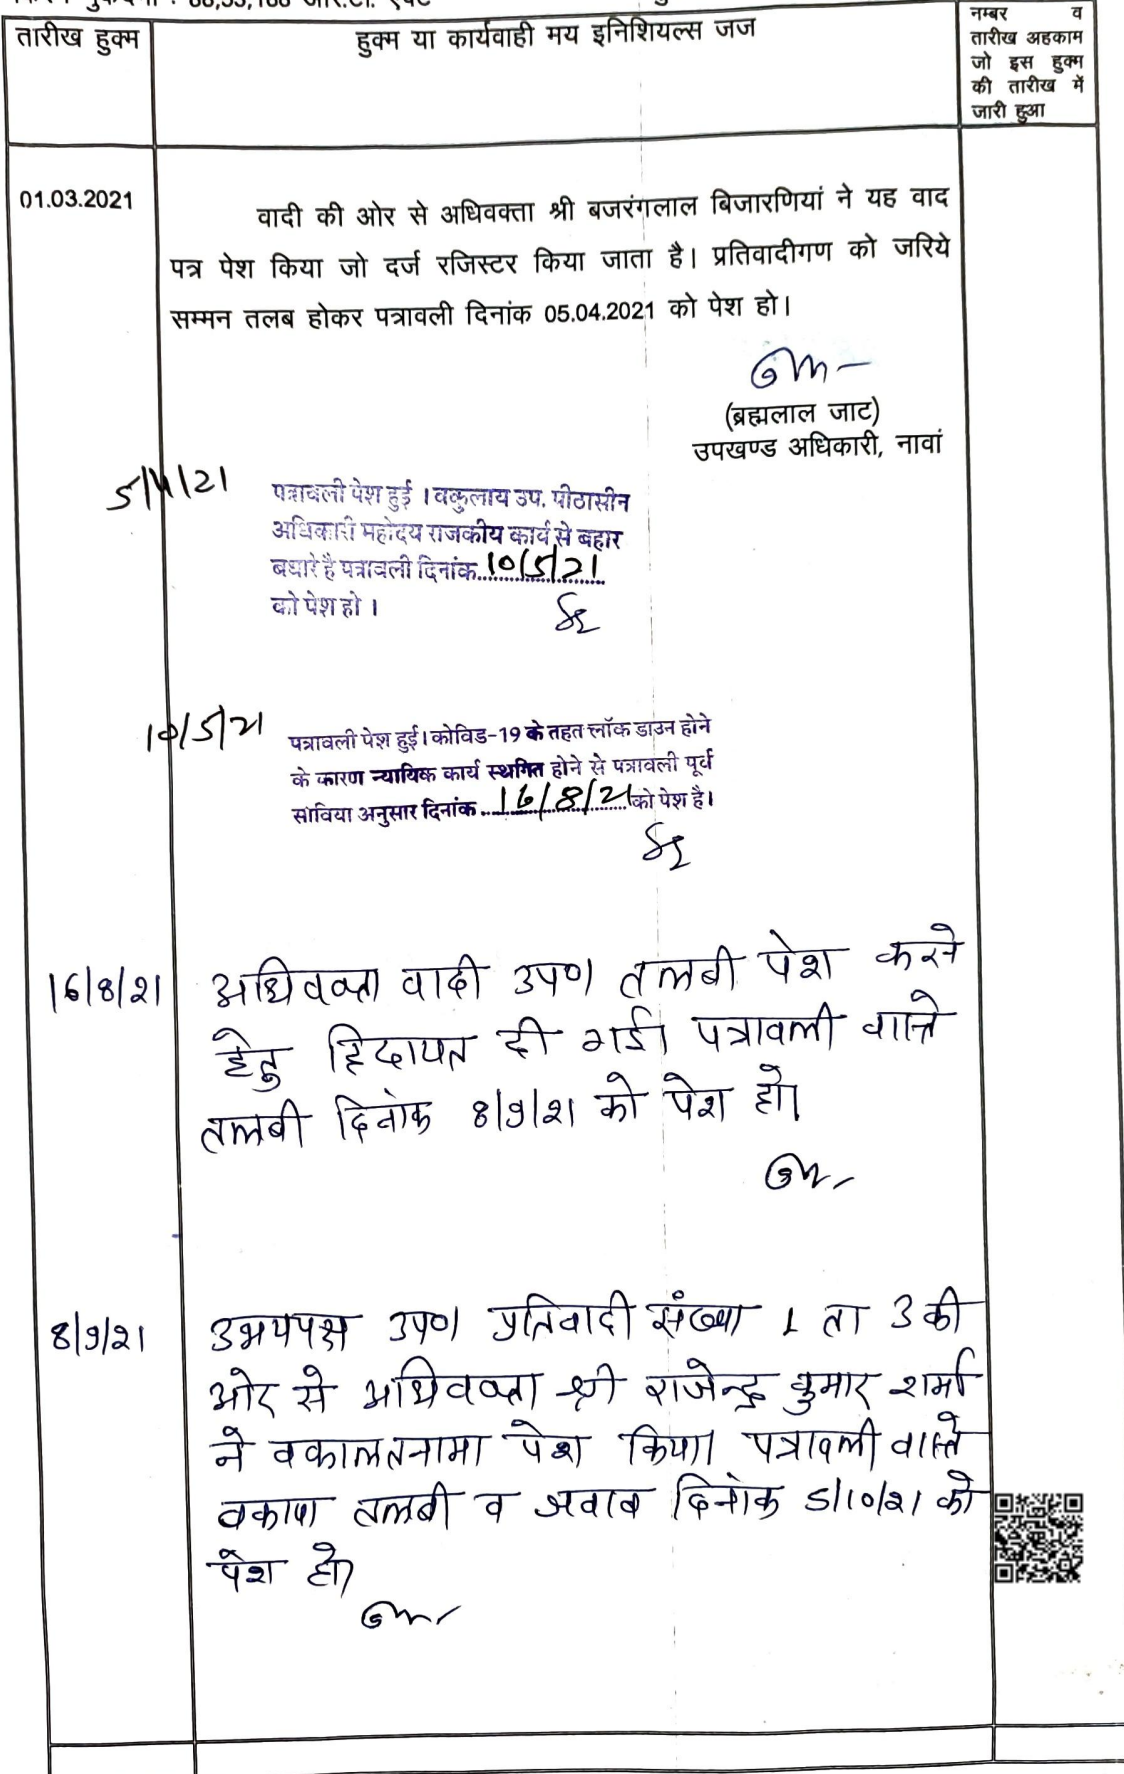 88,53,188 आर.टी. एक्ट
तारीख हुक्म
हुक्म या कार्यवाही मय इनिशियल्स जज
नम्बर व
तारीख अहकाम
जो इस हुक्म
की तारीख में
जारी हुआ
01.03.2021
वादी की ओर से अधिवक्ता श्री बजरंगलाल बिजारणियां ने यह वाद
पत्र पेश किया जो दर्ज रजिस्टर किया जाता है। प्रतिवादीगण को जरिये
सम्मन तलब होकर पत्रावली दिनांक 05.04.2021 को पेश हो।
(ब्रह्मलाल जाट)
उपखण्ड अधिकारी, नावां
5/4/21
पत्रावली पेश हुई । वकुलाय उप. पीठासीन
अधिकारी महोदय राजकीय कार्य से बहार
बधारे है पत्रावली दिनांक 10/5/21
को पेश हो ।
10/5/21
पत्रावली पेश हुई। कोविड-19 के तहत लॉक डाउन होने
के कारण न्यायिक कार्य स्थगित होने से पत्रावली पूर्व
अनुसार दिनांक 16/8/21 को पेश है।
16/8/21
अधिवक्ता वादी उप० तलबी पेश करने
हेतु हिदायत दी गई। पत्रावली वास्ते
तलबी दिनांक 8/9/21 को पेश हो।
8/9/21
उभयपक्ष उप० प्रतिवादी संख्या 1 ता 3 की
ओर से अधिवक्ता श्री राजेन्द्र कुमार शर्मा
ने वकालतनामा पेश किया। पत्रावली वास्ते
तलबी व जवाब दिनांक 5/10/21 को
पेश हो।